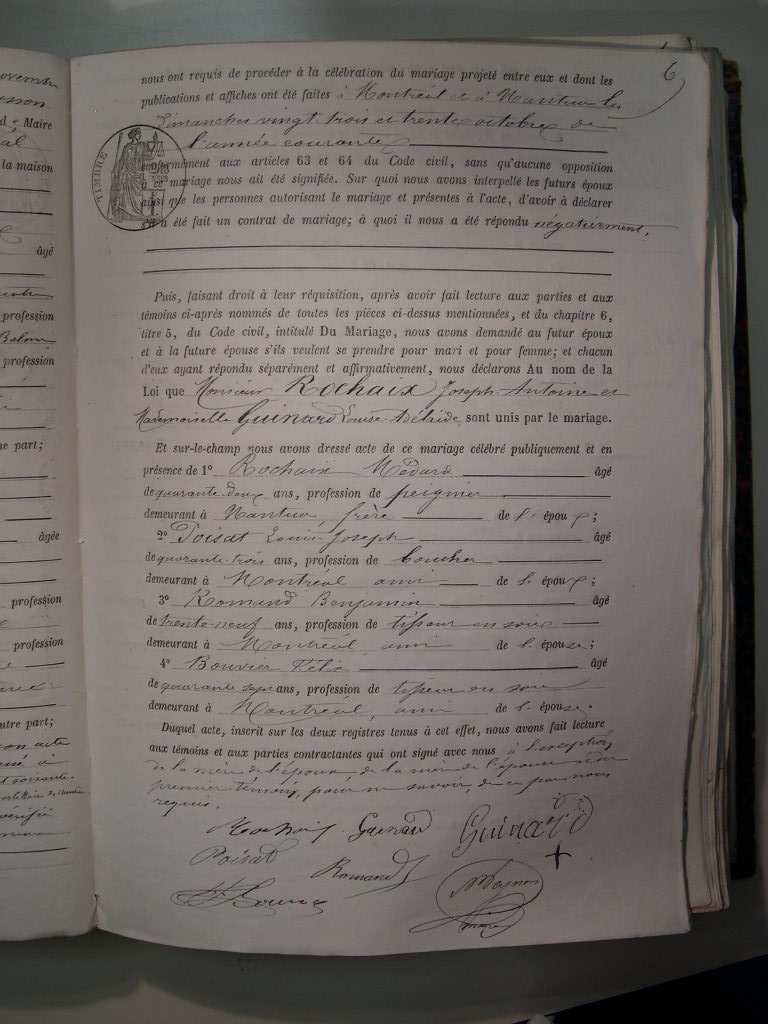 6
nous ont requis de procéder à la célébration du mariage projeté entre eux et dont les
publications et affiches ont été faites à Montréal et à Nantua les
Dimanches vingt trois et trente octobre de
l'année courante
conformément aux articles 63 et 64 du Code civil, sans qu'aucune opposition
à ce mariage nous ait été signifiée. Sur quoi nous avons interpellé les futurs époux
ainsi que les personnes autorisant le mariage et présentes à l'acte, d'avoir à déclarer
s'il a été fait un contrat de mariage; à quoi il nous a été répondu négativement.
TIMBRE
Puis, faisant droit à leur réquisition, après avoir fait lecture aux parties et aux
témoins ci-après nommés de toutes les pièces ci-dessus mentionnées, et du chapitre 6,
titre 5, du Code civil, intitulé Du Mariage, nous avons demandé au futur époux
et à la future épouse s'ils veulent se prendre pour mari et pour femme; et chacun
d'eux ayant répondu séparément et affirmativement, nous déclarons Au nom de la
Loi que Monsieur Rochaix Joseph-Antoine et
Mademoiselle Guinard Louise Adélaide, sont unis par le mariage.
Et sur-le-champ nous avons dressé acte de ce mariage célébré publiquement et en
présence de 1º Rochaix Médard âgé
de quarante-deux ans, profession de peignier
demeurant à Nantua frère de l'époux;
2º Poisat Louis Joseph âgé
de quarante-trois ans, profession de boucher
demeurant à Montréal ami de l'époux;
3º Romand Benjamin âgé
de trente-neuf ans, profession de tisseur en soie
demeurant à Montréal, ami de l'épouse;
4º Bouvier Félix âgé
de quarante sept ans, profession de tisseur en soie
demeurant à Montréal, ami de l'épouse.
Duquel acte, inscrit sur les deux registres tenus à cet effet, nous avons fait lecture
aux témoins et aux parties contractantes qui ont signé avec nous à l'exception
de la mère de l'époux, de la mère de l'épouse et du
premier témoin, pour ne savoir, de ce par nous
requis.
Guinard Guinard
Poisat Romand